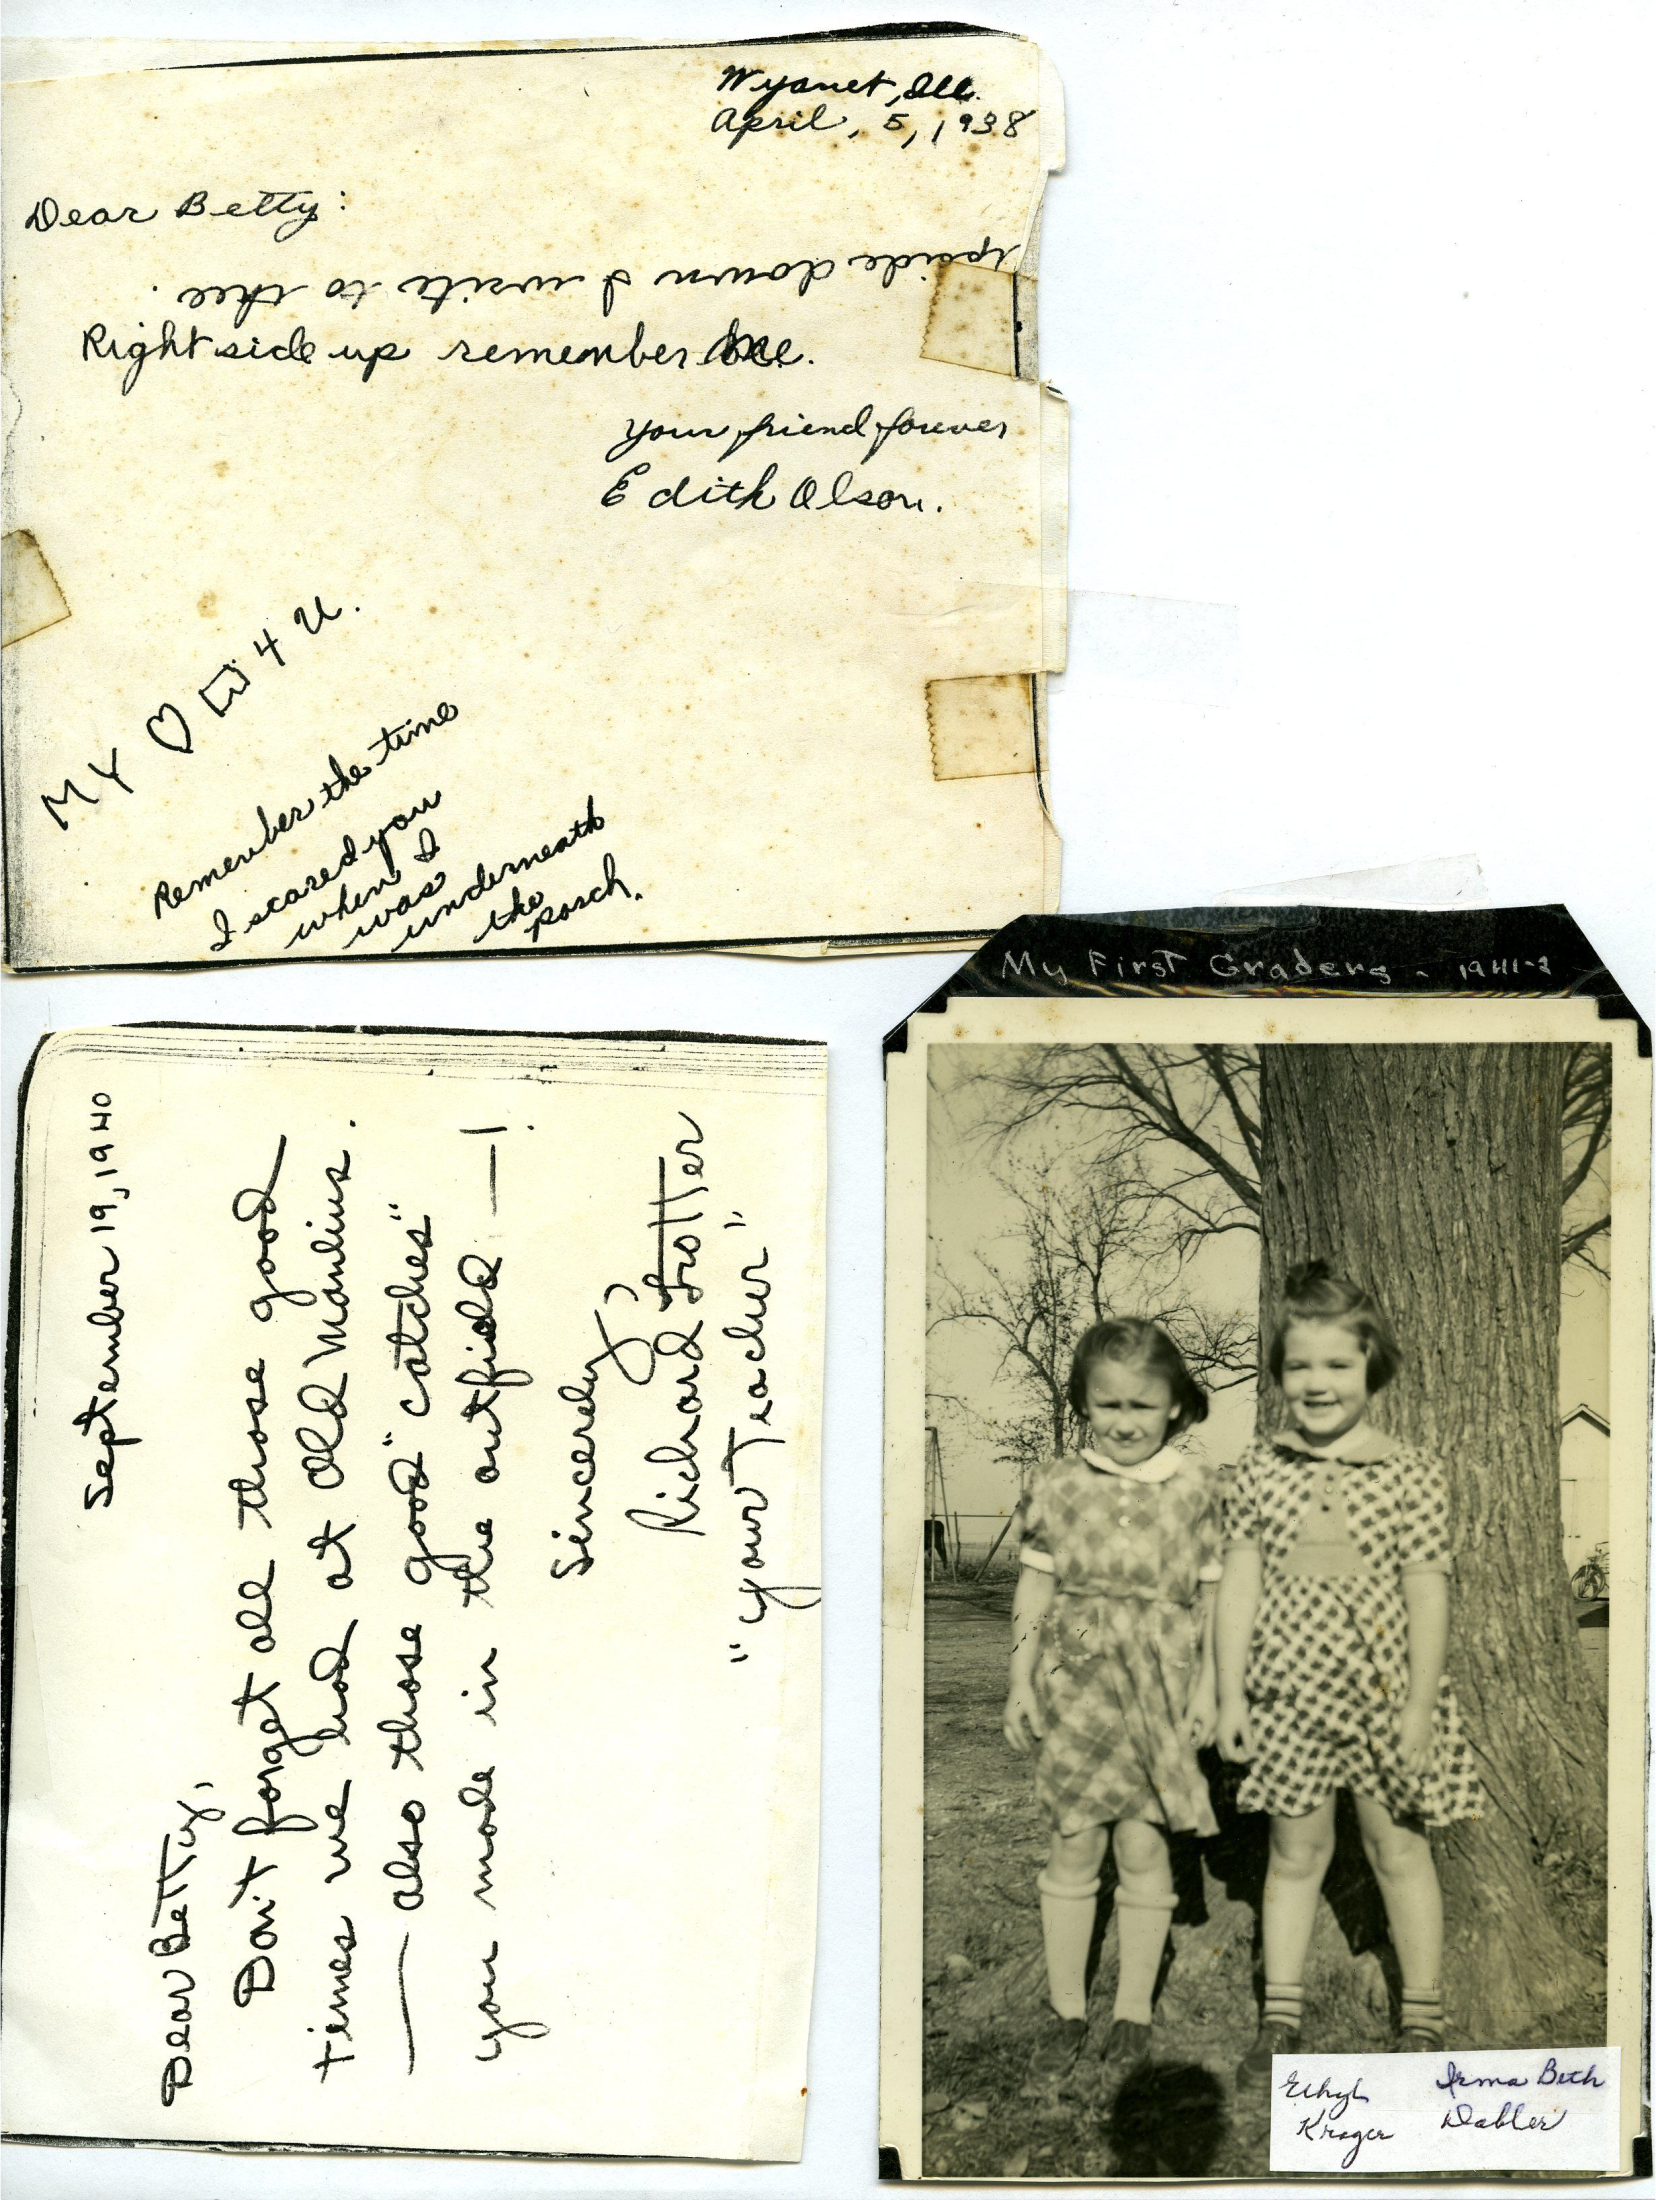 Wyanet, Ill.
April, 5, 1938
Dear Betty:
Upside down I write to thee.
Right side up remember me.
Your friend forever
Edith Olson.
MY 4 U.
Remember the time
I scared you
when I
was
underneath
the
porch.
September 19, 1940
Dear Betty,
Don't forget all those good
times we had at Old Manlius.
— also those good "catches"
you made in the outfield — !
Sincerely,
Richard Trotter
"your Teacher"
My First Graders - 1941-2
Ethyl
Kroger
Irma Beth
Dabler